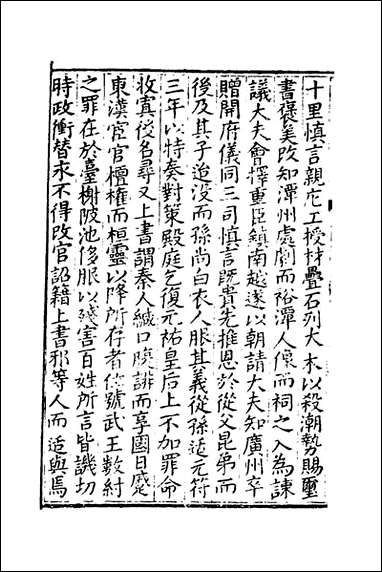 十里慎言親庀工授材疊石列大木以殺潮勢賜璽
書褒美改知潭州處劇而裕潭人像而祠之入為諫
議大夫會擇重臣鎮南越遂以朝請大夫知廣州卒
贈開府儀同三司慎言既貴先推恩於從父昆弟而
後及其子迨没而孫尚白衣人服其義從孫适元符
三年以特奏對策殿庭乞復元祐皇后上不加罪命
收寘佼名尋又上書謂秦人緘口陜誹而享國日蹙
東漢宦官檀權而桓靈以降所存者位號武王數紂
之罪在於臺榭陂池侈服以殘害百姓所言皆譏切
時政衝替求不得改官詔籍上書邪等人而适與焉